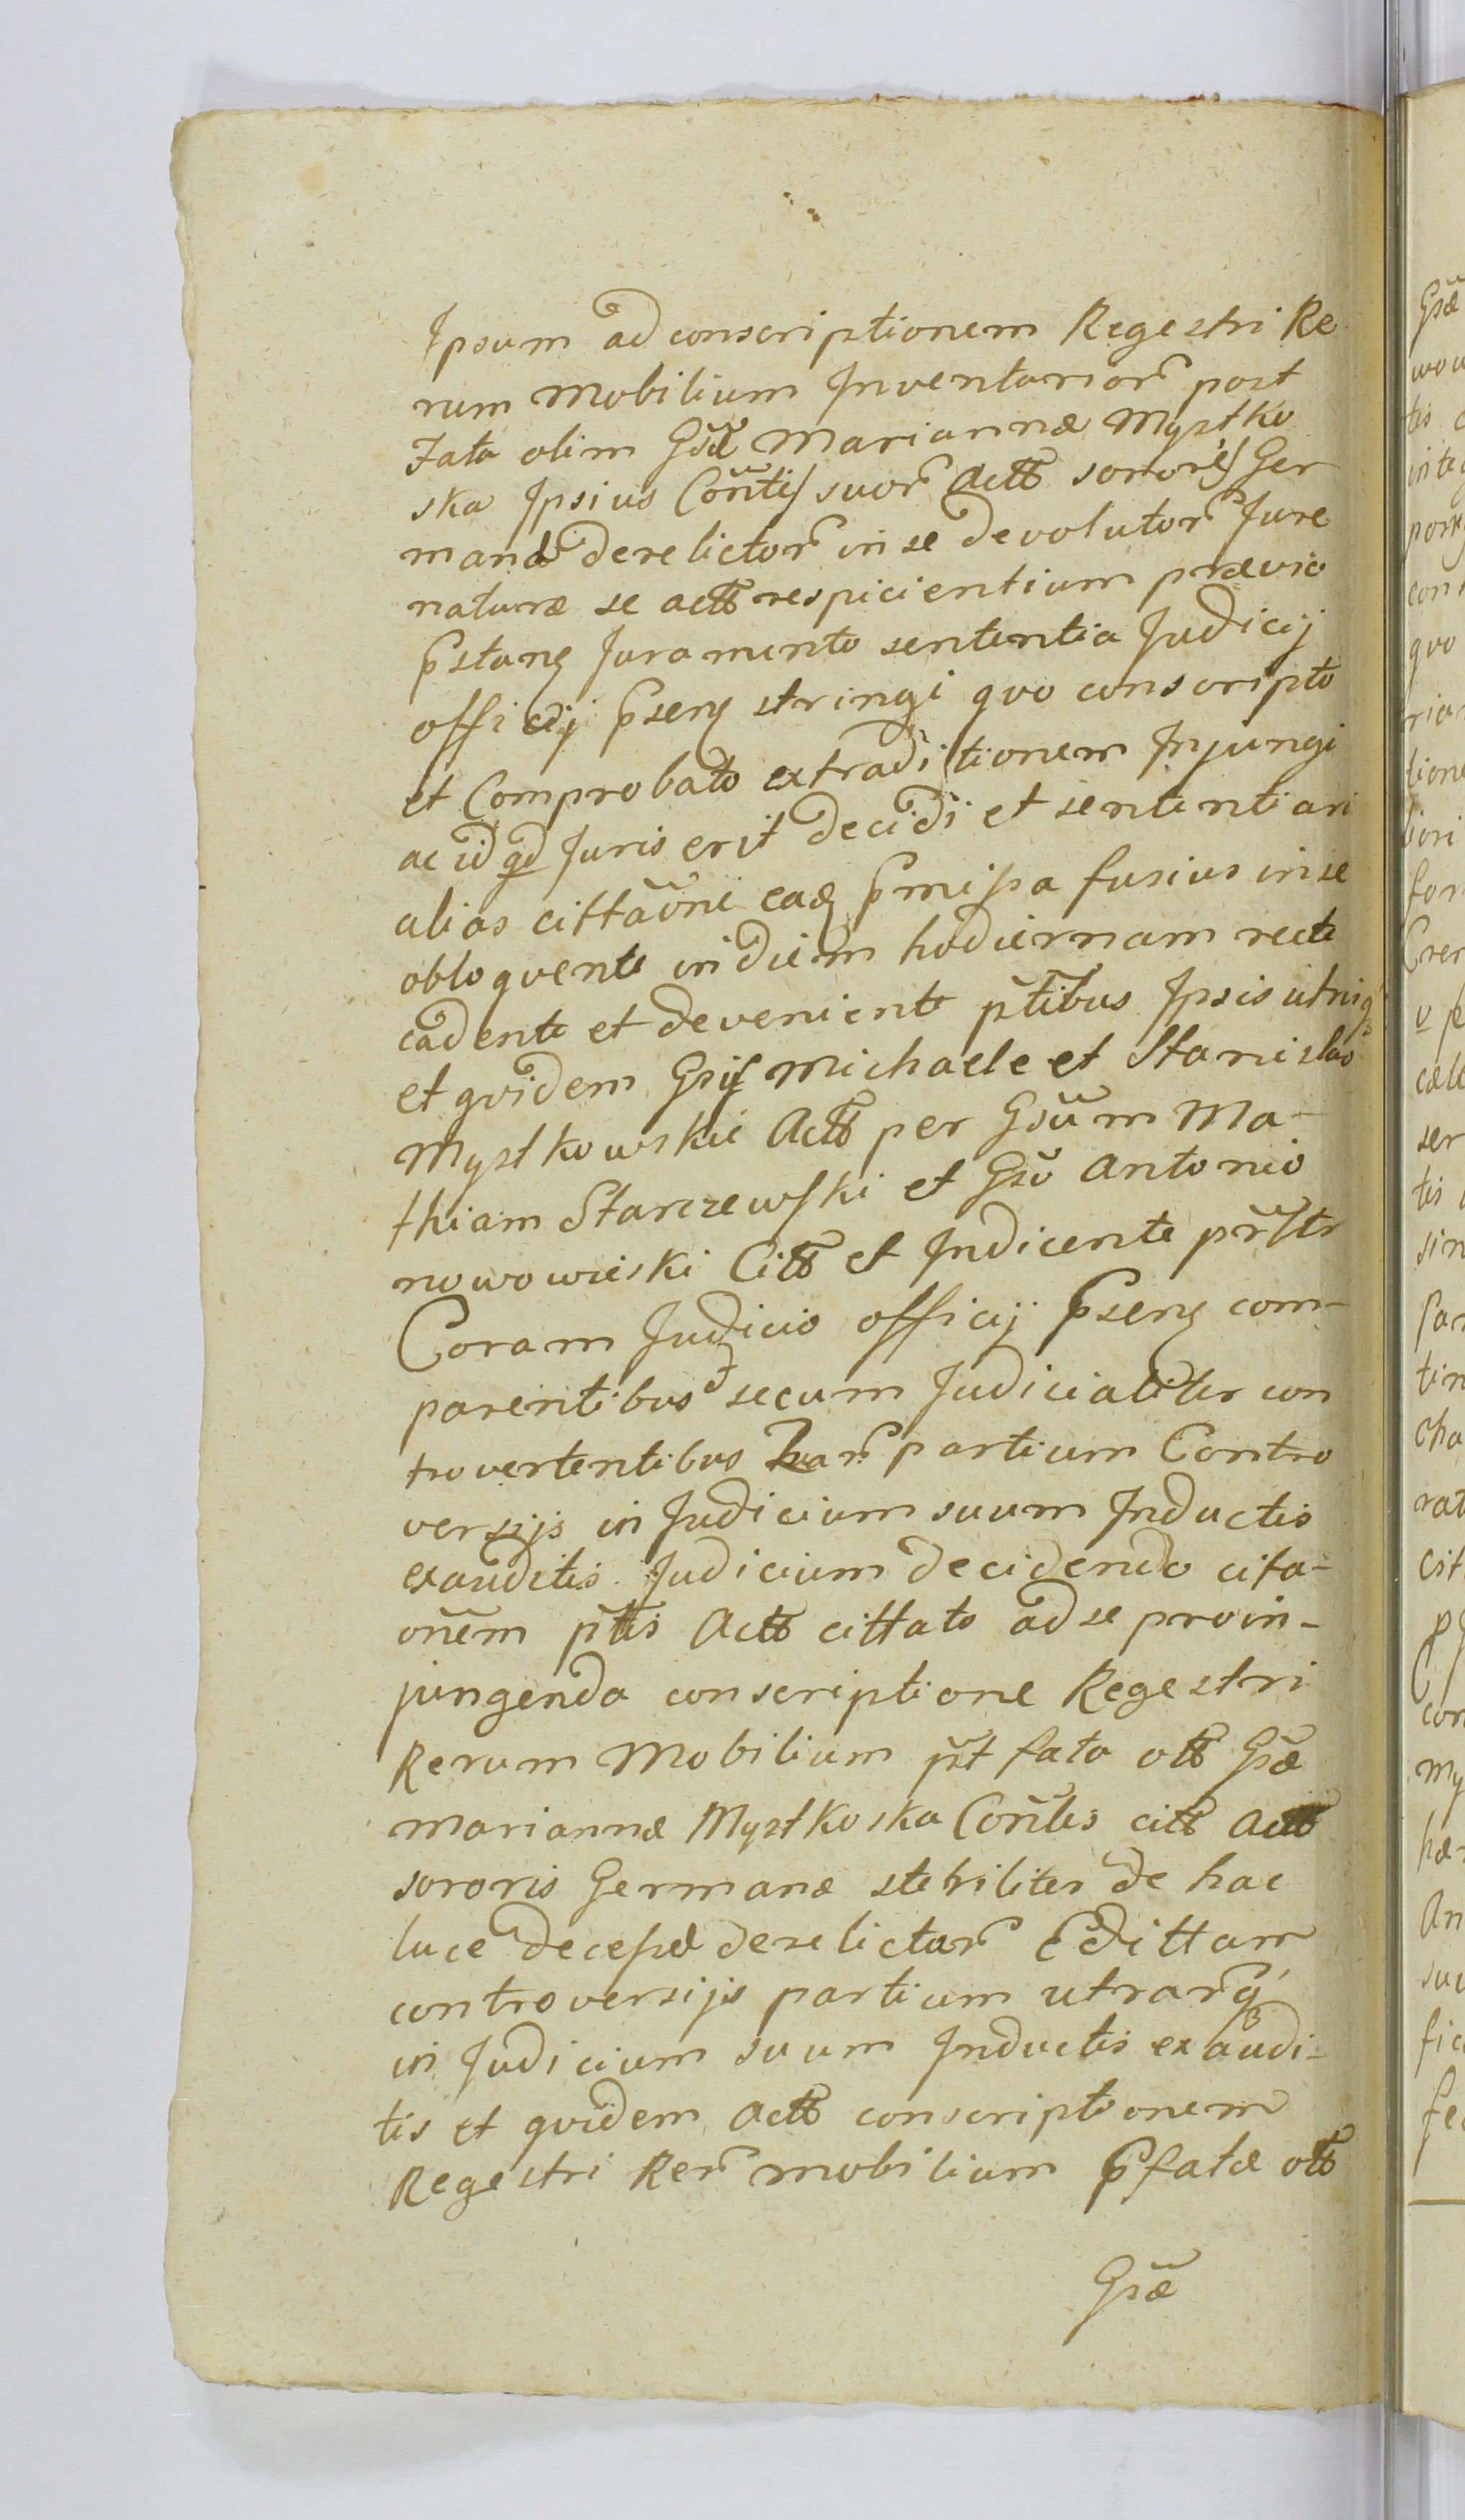 Ipsum ad conscriptionem Regestri Re
rum Mobilium Inventarior̃ post
Fata olim Gsæ̃ Mariannæ Mystko
ska Ipsius Con̄tis suor̃ Actt̃ sororis Ger
manæ derelictor̃ in se devolutor̃ Jure
naturæ se actt̃ respicientium prævio
p̃stanɖ Juramento sententia Judicij
officij p̃senɖ stringi quo conscripto
et Comprobato extraditionem Injungi
ac id qd Juris erit decidi et sententiari
alias cittaõne eaɖ p̃missa fusius in se
obloquente in diem hodiernam recte
cadente et deveniente p̃tibus Ipsis utriq3
et quidem Gsis Michaele et Stanislao
Mystkowskie Actt̃ per Gsũm Ma-
thiam Starczewski et Gsõ Antonio
nowowieski Citt̃ et Indicente pr̃ Itr
Coram Judicio officij p̃senɖ com-
parentibus et secum Judicialiter con
trovertentibus har̃ partium Contro
versijs in Judicium suum Inductis
exauditis. Judicium decidendo cita-
onẽm p̃tis Actt̃ cittato ad se pro in-
jungenda conscriptione Regestri
Rerum Mobilium p̃t fata ott̃ Gsæ̃
mariannæ Mystkoska Con̄tis citt̃ actt̃
sororis Germanæ steriliter de hac
luce decessæ derelictar̃ Edittam
controversijs partium utrarq̃3
in Judicium suum Inductis exaudi-
tis et quidem actt̃ conscriptionem
Regestri Rer̃ mobilium p̃fatæ ott̃
Gsæ̃